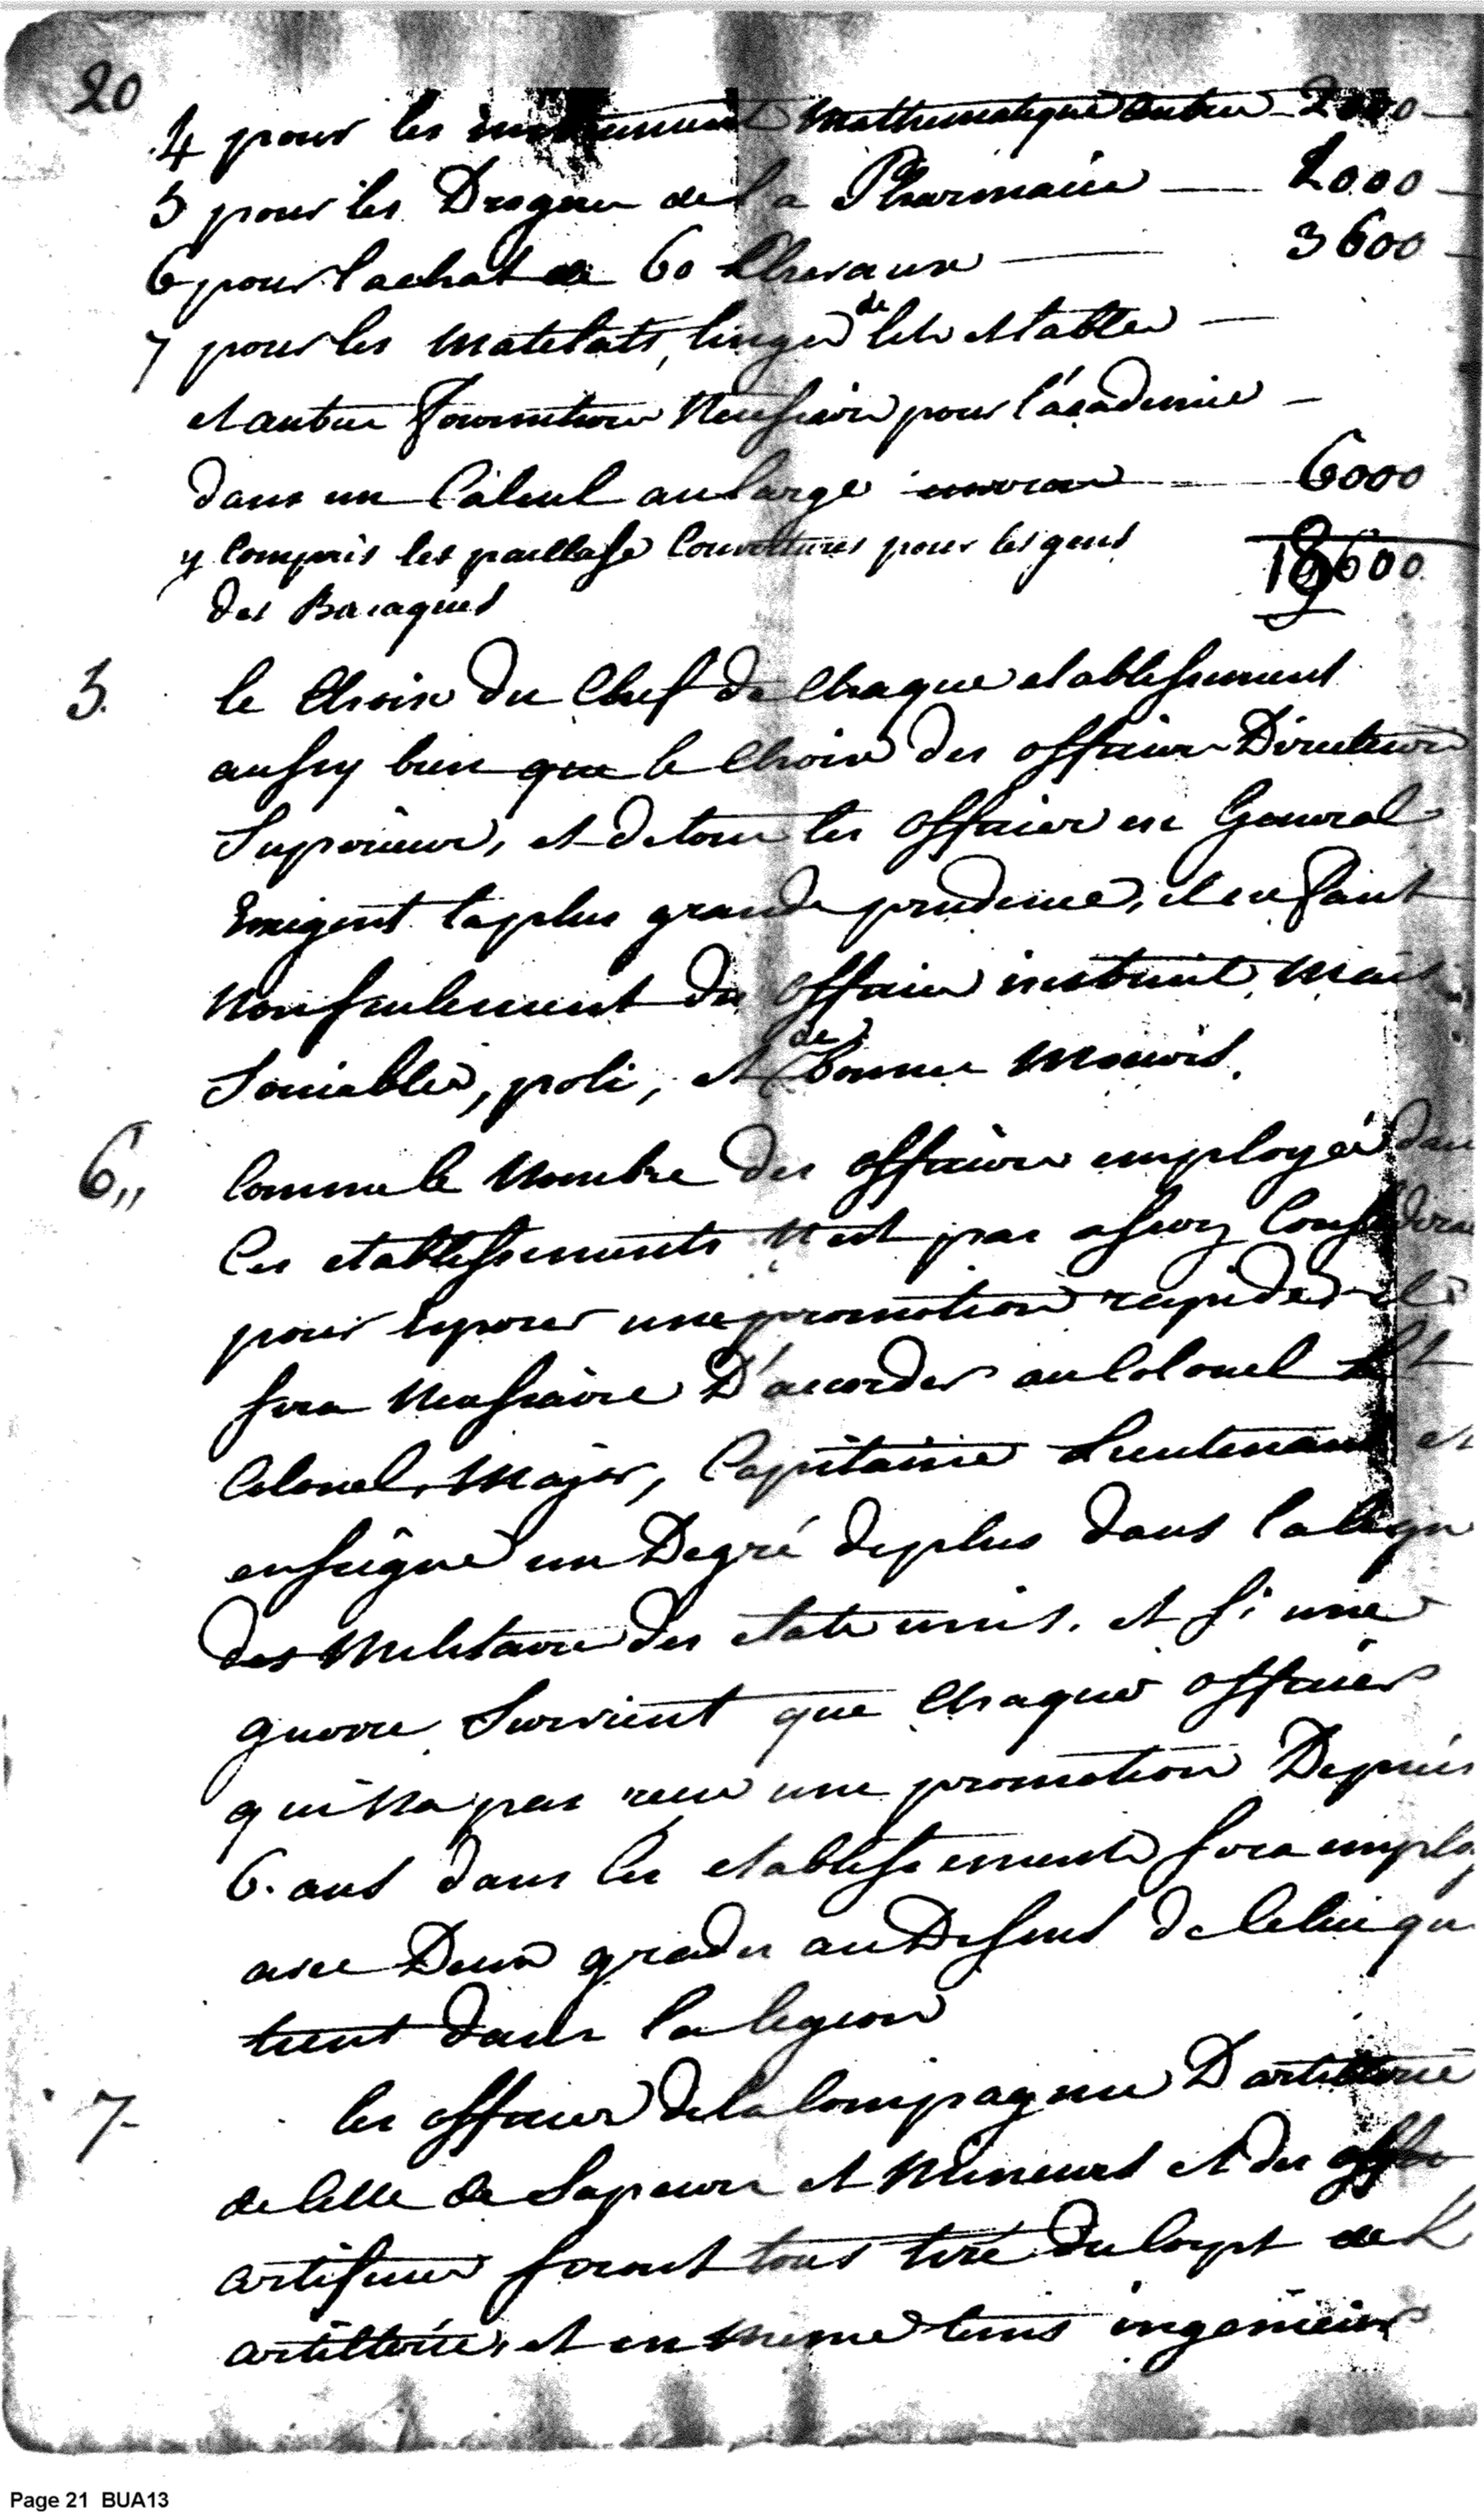 20
4 pour les instrument Mathematique autre - 2000 -
5 pour les Drogeu de la Pharmacie — 2000 -
6 pour l'achat de 60 Chevaux — 3600 -
7 pour les Matelats, linger de lits et tables —
et autre fournitures Necessaire pour l'academie -
dans un Calcul au large environ — 6000
y Compris les paillasse Couvertures pour les gens
des Baraques
18600
5. le Choix du Chef de Chaque etablissement
aussy bien que le Choix des officiers Directeurs
Superieur, et de tous les officier en General
Exigent la plus grande prudence, il en faut
Non seulement des officier instruit, Mais
Sociable, poli, et de bonne Moeurs.
6,, Comme le Nombre des officiers employée dans
Ces etablissements N'est pas assez Considera
pour Esperer une promotion rapide, il
sera Necessaire D'accorder au Colonel Lt
Colonel, Major, Capitaine Lieutenant et
enseigne un Degré de plus dans la legn
des Militaire des etats unis. et si une
guerre Survient que Chaque officier
qui Na pas recu une promotion Depuis
6. ans dans les etablissements sera emplo
avec Deux grades au Dessus de Celui qu
tient dans la legion
7- les officier de la Compagnie D'artillerie
de Celle de Sapeurs et Mineurs et des
artificier seront tous tiré du Corps de L
artillerie, et en Meme tems ingenieur
Page 21 BUA13